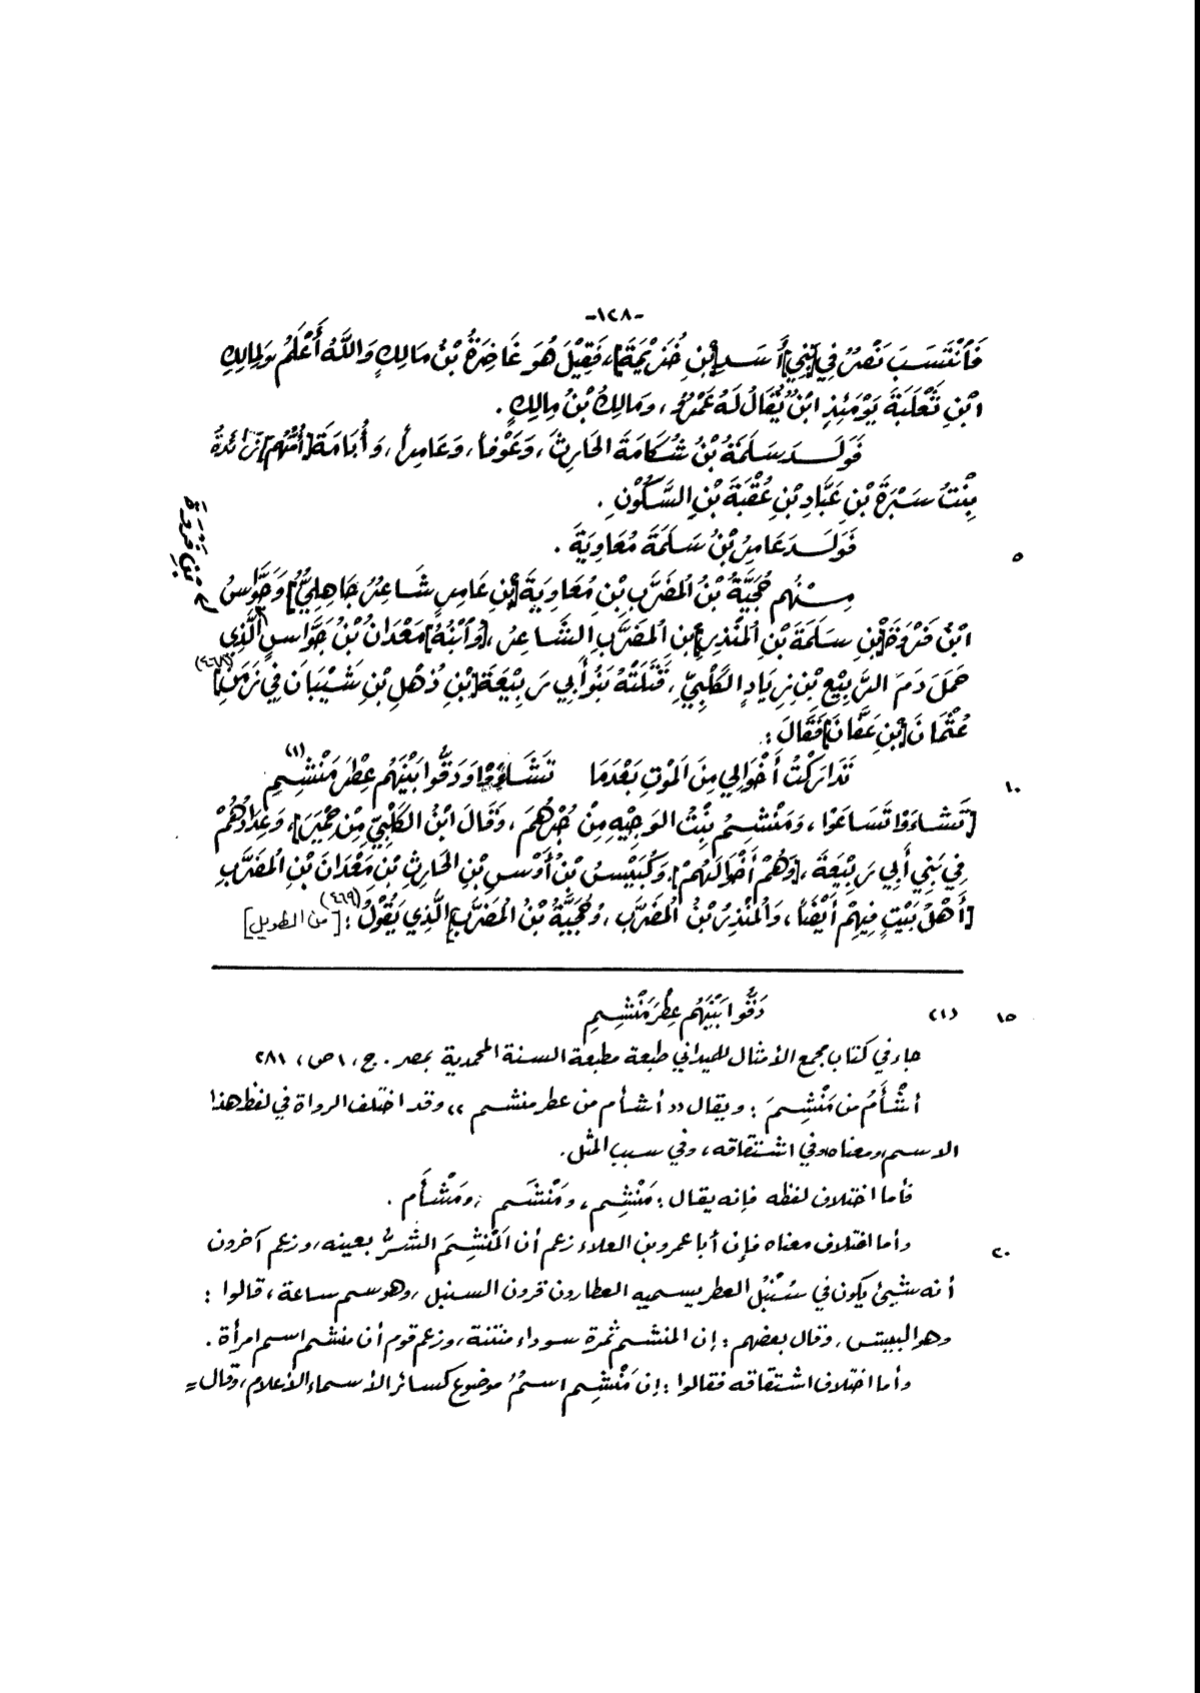 -١٢٨-
فَانْتَسَبَ نَصْرٌ فِي [بَنِي] أَسَدِ [بْنِ خُزَيْمَةَ]، فَقِيْلَ هُوَ غَاضِرَةُ بْنُ مَالِكٍ وَاللَّهُ أَعْلَمُ وَلِمَالِكِ
ابْنِ ثَعْلَبَةَ يَوْمَئِذٍ ابْنٌ يُقَالُ لَهُ عَمْرٌو، وَمَالِكُ بْنُ مَالِكٍ.
فَوَلَدَ سَلَمَةُ بْنُ شُكَامَةَ الحَارِثَ، وَعَوْفاً، وَعَامِراً، وَأُبَامَةَ [أُمُّهُم] زَائِدَةُ
بِنْتُ سَبْرَةَ بْنِ عَبَّادِ بْنِ عُقْبَةَ بْنِ السَّكُوْنِ.
فَوَلَدَ عَامِرُ بْنُ سَلَمَةَ مُعَاوِيَةَ.
٥
مِنْهُم حُجَيَّةُ بْنُ المُضَرَّبِ بْنِ مُعَاوِيَةَ [بْنِ عَامِرٍ شَاعِرٌ جَاهِلِيٌّ] وَجَوَّاسُ
بْنِ فَرْوَةَ
ابْنُ فَرْوَةَ [بْنِ سَلَمَةَ بْنِ المُنْذِرِ] بْنِ المُضَرَّبِ الشَّاعِرُ، [وَابْنُهُ] مَعْدَانُ بْنُ جَوَّاسٍ الَّذِي
حَمَلَ دَمَ الرَّبِيْعِ بْنِ زِيَادٍ الكَلْبِيِّ، قَتَلَتْهُ بَنُو أَبِي رَبِيْعَةَ [بْنِ ذُهْلِ بْنِ شَيْبَانَ فِي زَمَنِ] (٤٦٨)
عُثْمَانَ [بْنِ عَفَّانَ] فَقَالَ:
تَدَارَكْتُ أَخْوَالِي مِنَ المَوْتِ بَعْدَمَا تَشَاءَوْا وَدَقُّوا بَيْنَهُم عِطْرَ مَنْشِمِ (١)
١٠
[تَشَاءَوْا تَسَاعَوْا، وَمَنْشِمُ بِنْتُ الوَجِيْهِ مِنْ جُرْهُمَ، وَقَالَ ابْنُ الكَلْبِيِّ مِنْ حِمْيَرَ]، وَعِدَادُهُمْ
فِي بَنِي أَبِي رَبِيْعَةَ، [وَهُمْ أَخْوَالُهُمْ]. وَكُبَيْسُ بْنُ أَوْسِ بْنِ الحَارِثِ بْنِ مَعْدَانَ بْنِ المُضَرَّبِ
[أَهْلُ بَيْتٍ فِيْهِمْ أَيْضاً، وَالمُنْذِرُ بْنُ المُضَرَّبِ، وَحُجَيَّةُ بْنُ المُضَرَّبِ] الَّذِي يَقُوْلُ: (٤٦٩) [من الطويل]
(١) دَقُّوا بَيْنَهُم عِطْرَ مَنْشِمِ
١٥
جاء في كتاب مجمع الأمثال للميداني طبعة مطبعة السنة المحمدية بمصر. ج، ١ ص، ٢٨١
أَشْأَمُ مِن مَنْشِمَ: ويقال «أشأم من عطر منشم» وقد اختلف الرواة في لفظ هذا
الاسم ومعناه وفي اشتقاقه، وفي سبب المثل.
فأما اختلاف لفظه فإنه يقال: مَنْشِم، ومَنْشَم، ومَشْأَم.
وأما اختلاف معناه فإن أبا عمرو بن العلاء زعم أن المَنْشِمَ الشرُّ بعينه، وزعم آخرون
٢٠
أنه شيئ يكون في سُنْبُل العطر يسميه العطارون قرون السنبل، وهو سم ساعة، قالوا:
وهو البيش، وقال بعضهم: إن المنشم ثمرة سوداء منتنة، وزعم قوم أن منشم اسم امرأة.
وأما اختلاف اشتقاقه فقالوا: إن مَنْشِم اسمٌ موضوع كسائر الأسماء الأعلام، وقال =